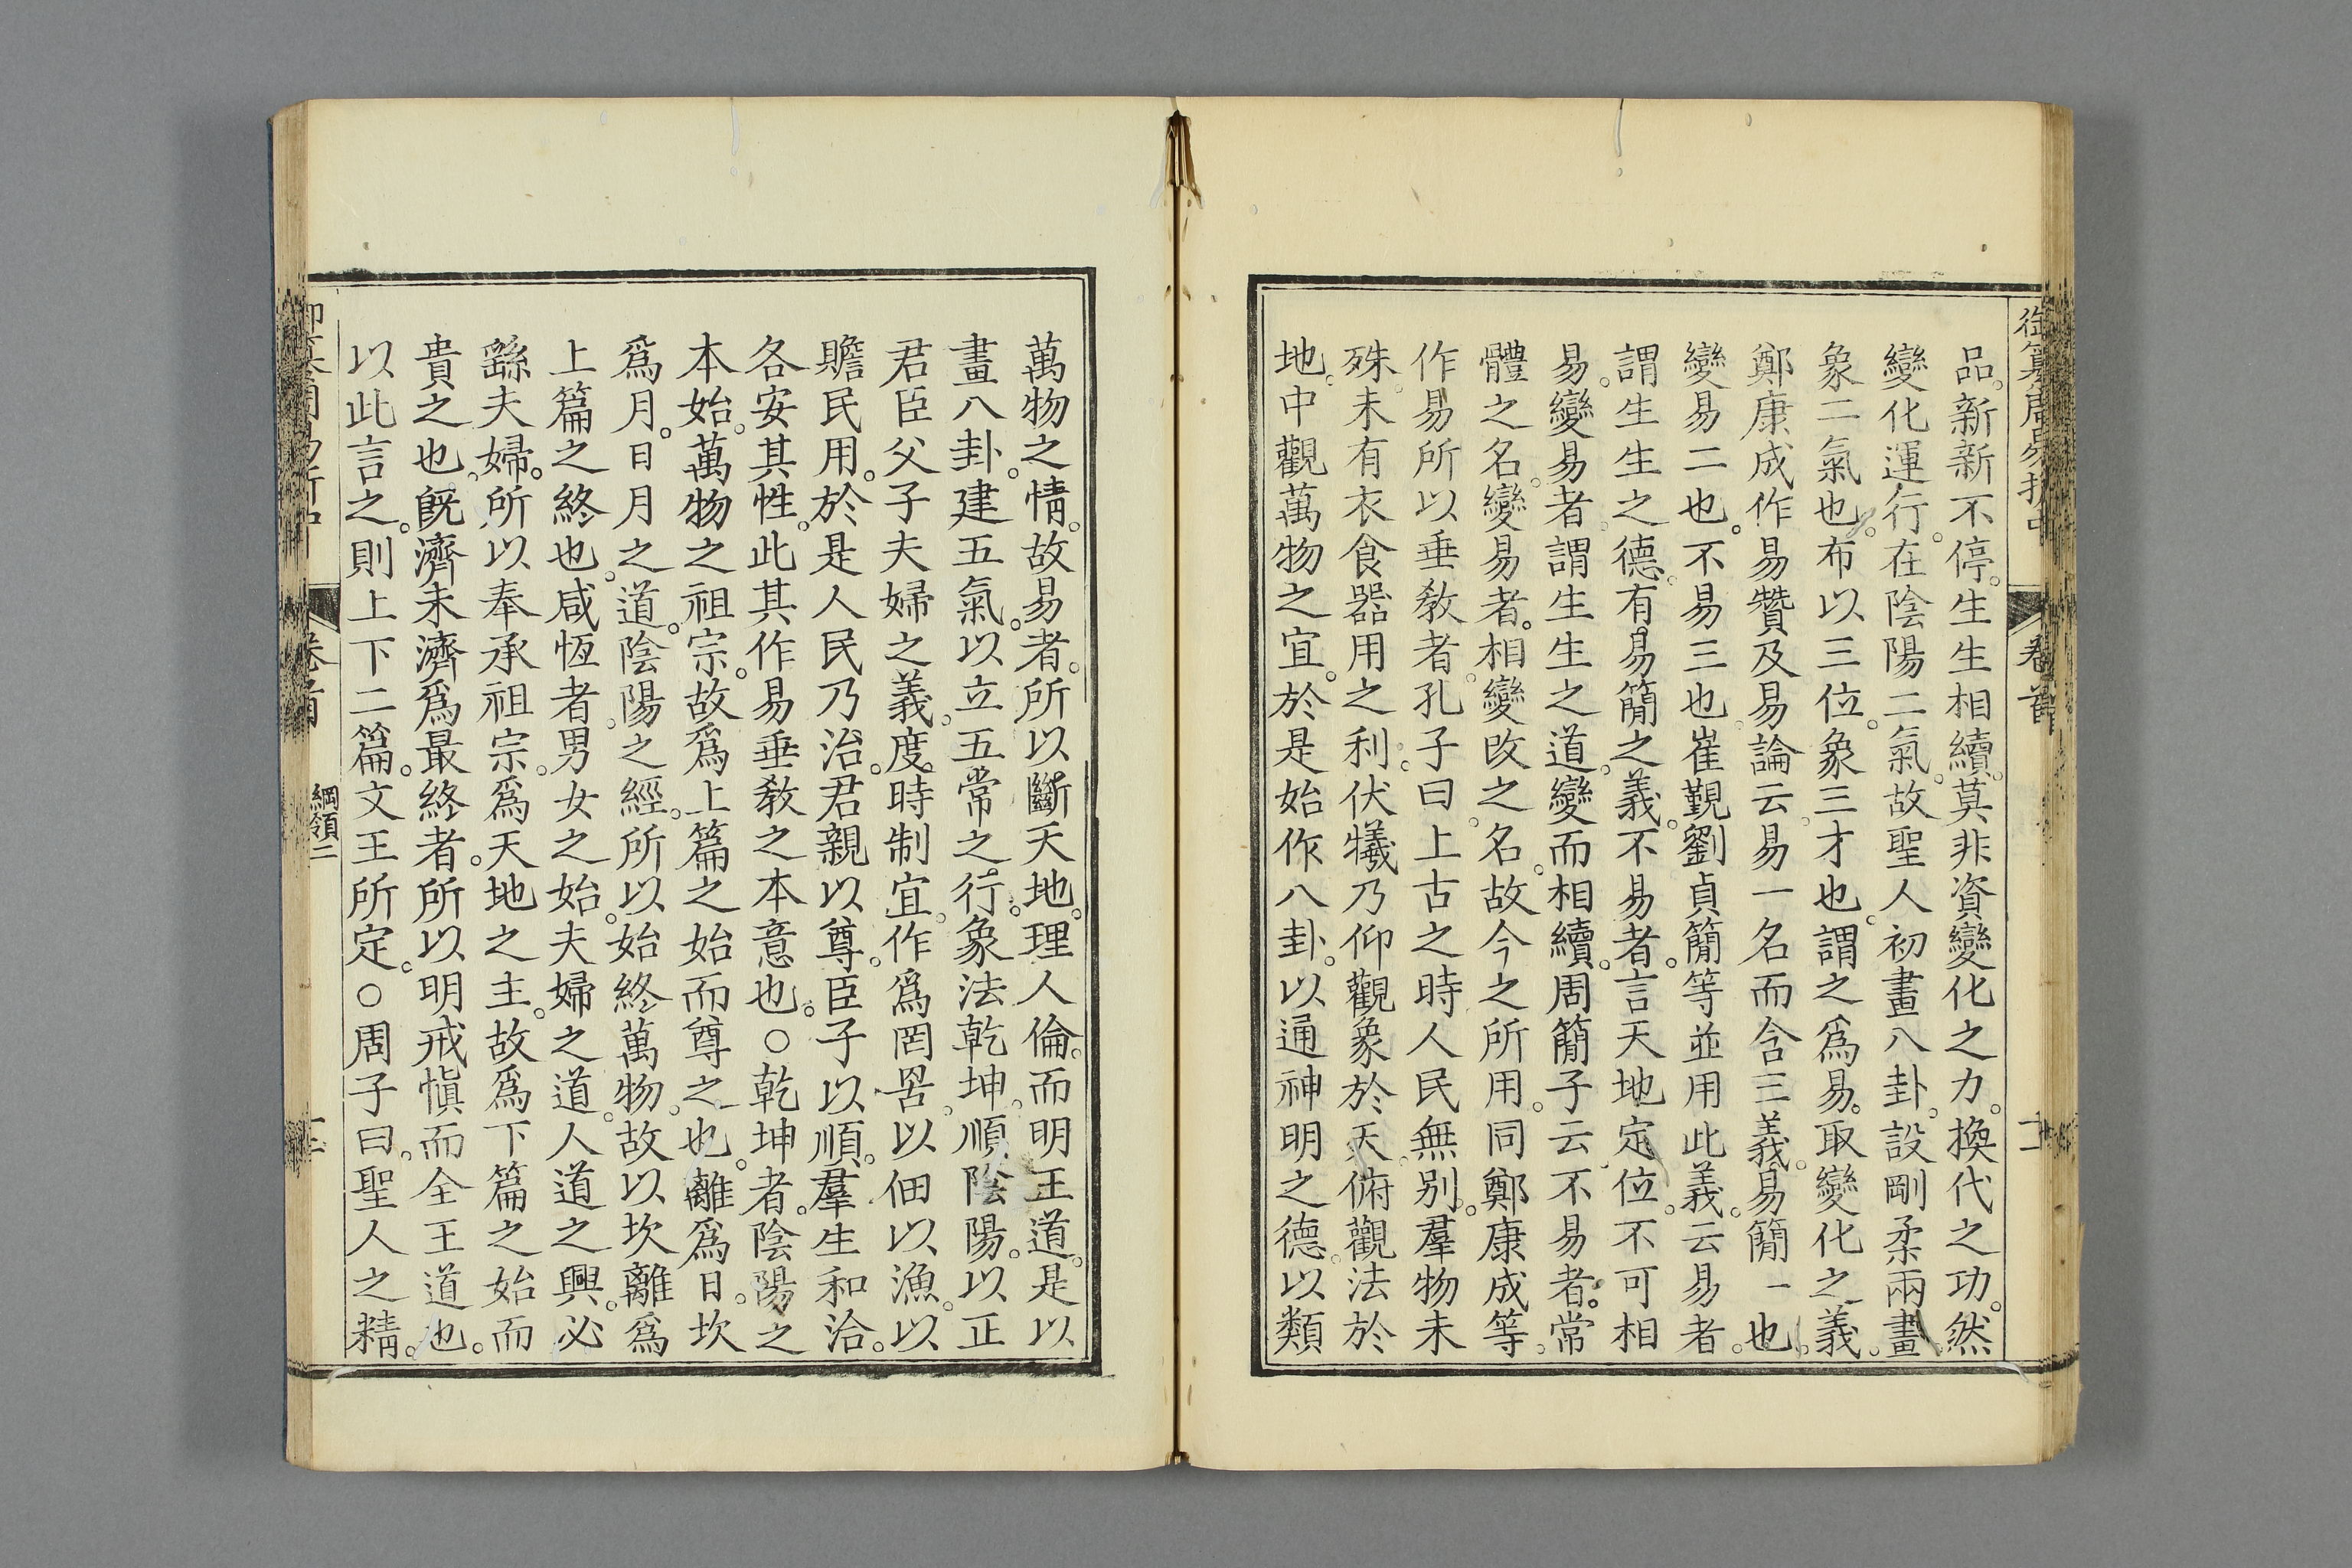 御纂周易折中 卷首
品。新新不停。生生相續。莫非資變化之力。換代之功。然
變化運行。在陰陽二氣。故聖人初畫八卦。設剛柔兩畫。
象二氣也。布以三位。象三才也。謂之爲易。取變化之義。
鄭康成作易贊及易論云。易一名而含三義。易簡一也。
變易二也。不易三也。崔覲劉貞簡等並用此義。云易者。
謂生生之德。有易簡之義。不易者。言天地定位。不可相
易。變易者。謂生生之道。變而相續。周簡子云。不易者。常
體之名。變易者。相變改之名。故今之所用。同鄭康成等。
作易所以垂敎者。孔子曰。上古之時。人民無別。羣物未
殊。未有衣食器用之利。伏犧乃仰觀象於天。俯觀法於
地。中觀萬物之宜。於是始作八卦。以通神明之德。以類
萬物之情。故易者。所以斷天地。理人倫。而明王道。是以
畫八卦。建五氣。以立五常之行。象法乾坤。順陰陽。以正
君臣父子夫婦之義。度時制宜。作爲罔罟。以佃以漁。以
贍民用。於是人民乃治。君親以尊。臣子以順。羣生和洽。
各安其性。此其作易垂敎之本意也。○乾坤者。陰陽之
本始。萬物之祖宗。故爲上篇之始而尊之也。離爲日。坎
爲月。日月之道。陰陽之經。所以始終萬物。故以坎離爲
上篇之終也。咸恆者。男女之始。夫婦之道。人道之興。必
繇夫婦。所以奉承祖宗。爲天地之主。故爲下篇之始而
貴之也。旣濟未濟爲最終者。所以明戒愼而全王道也。
以此言之。則上下二篇。文王所定。○周子曰。聖人之精。
卷首 綱領二